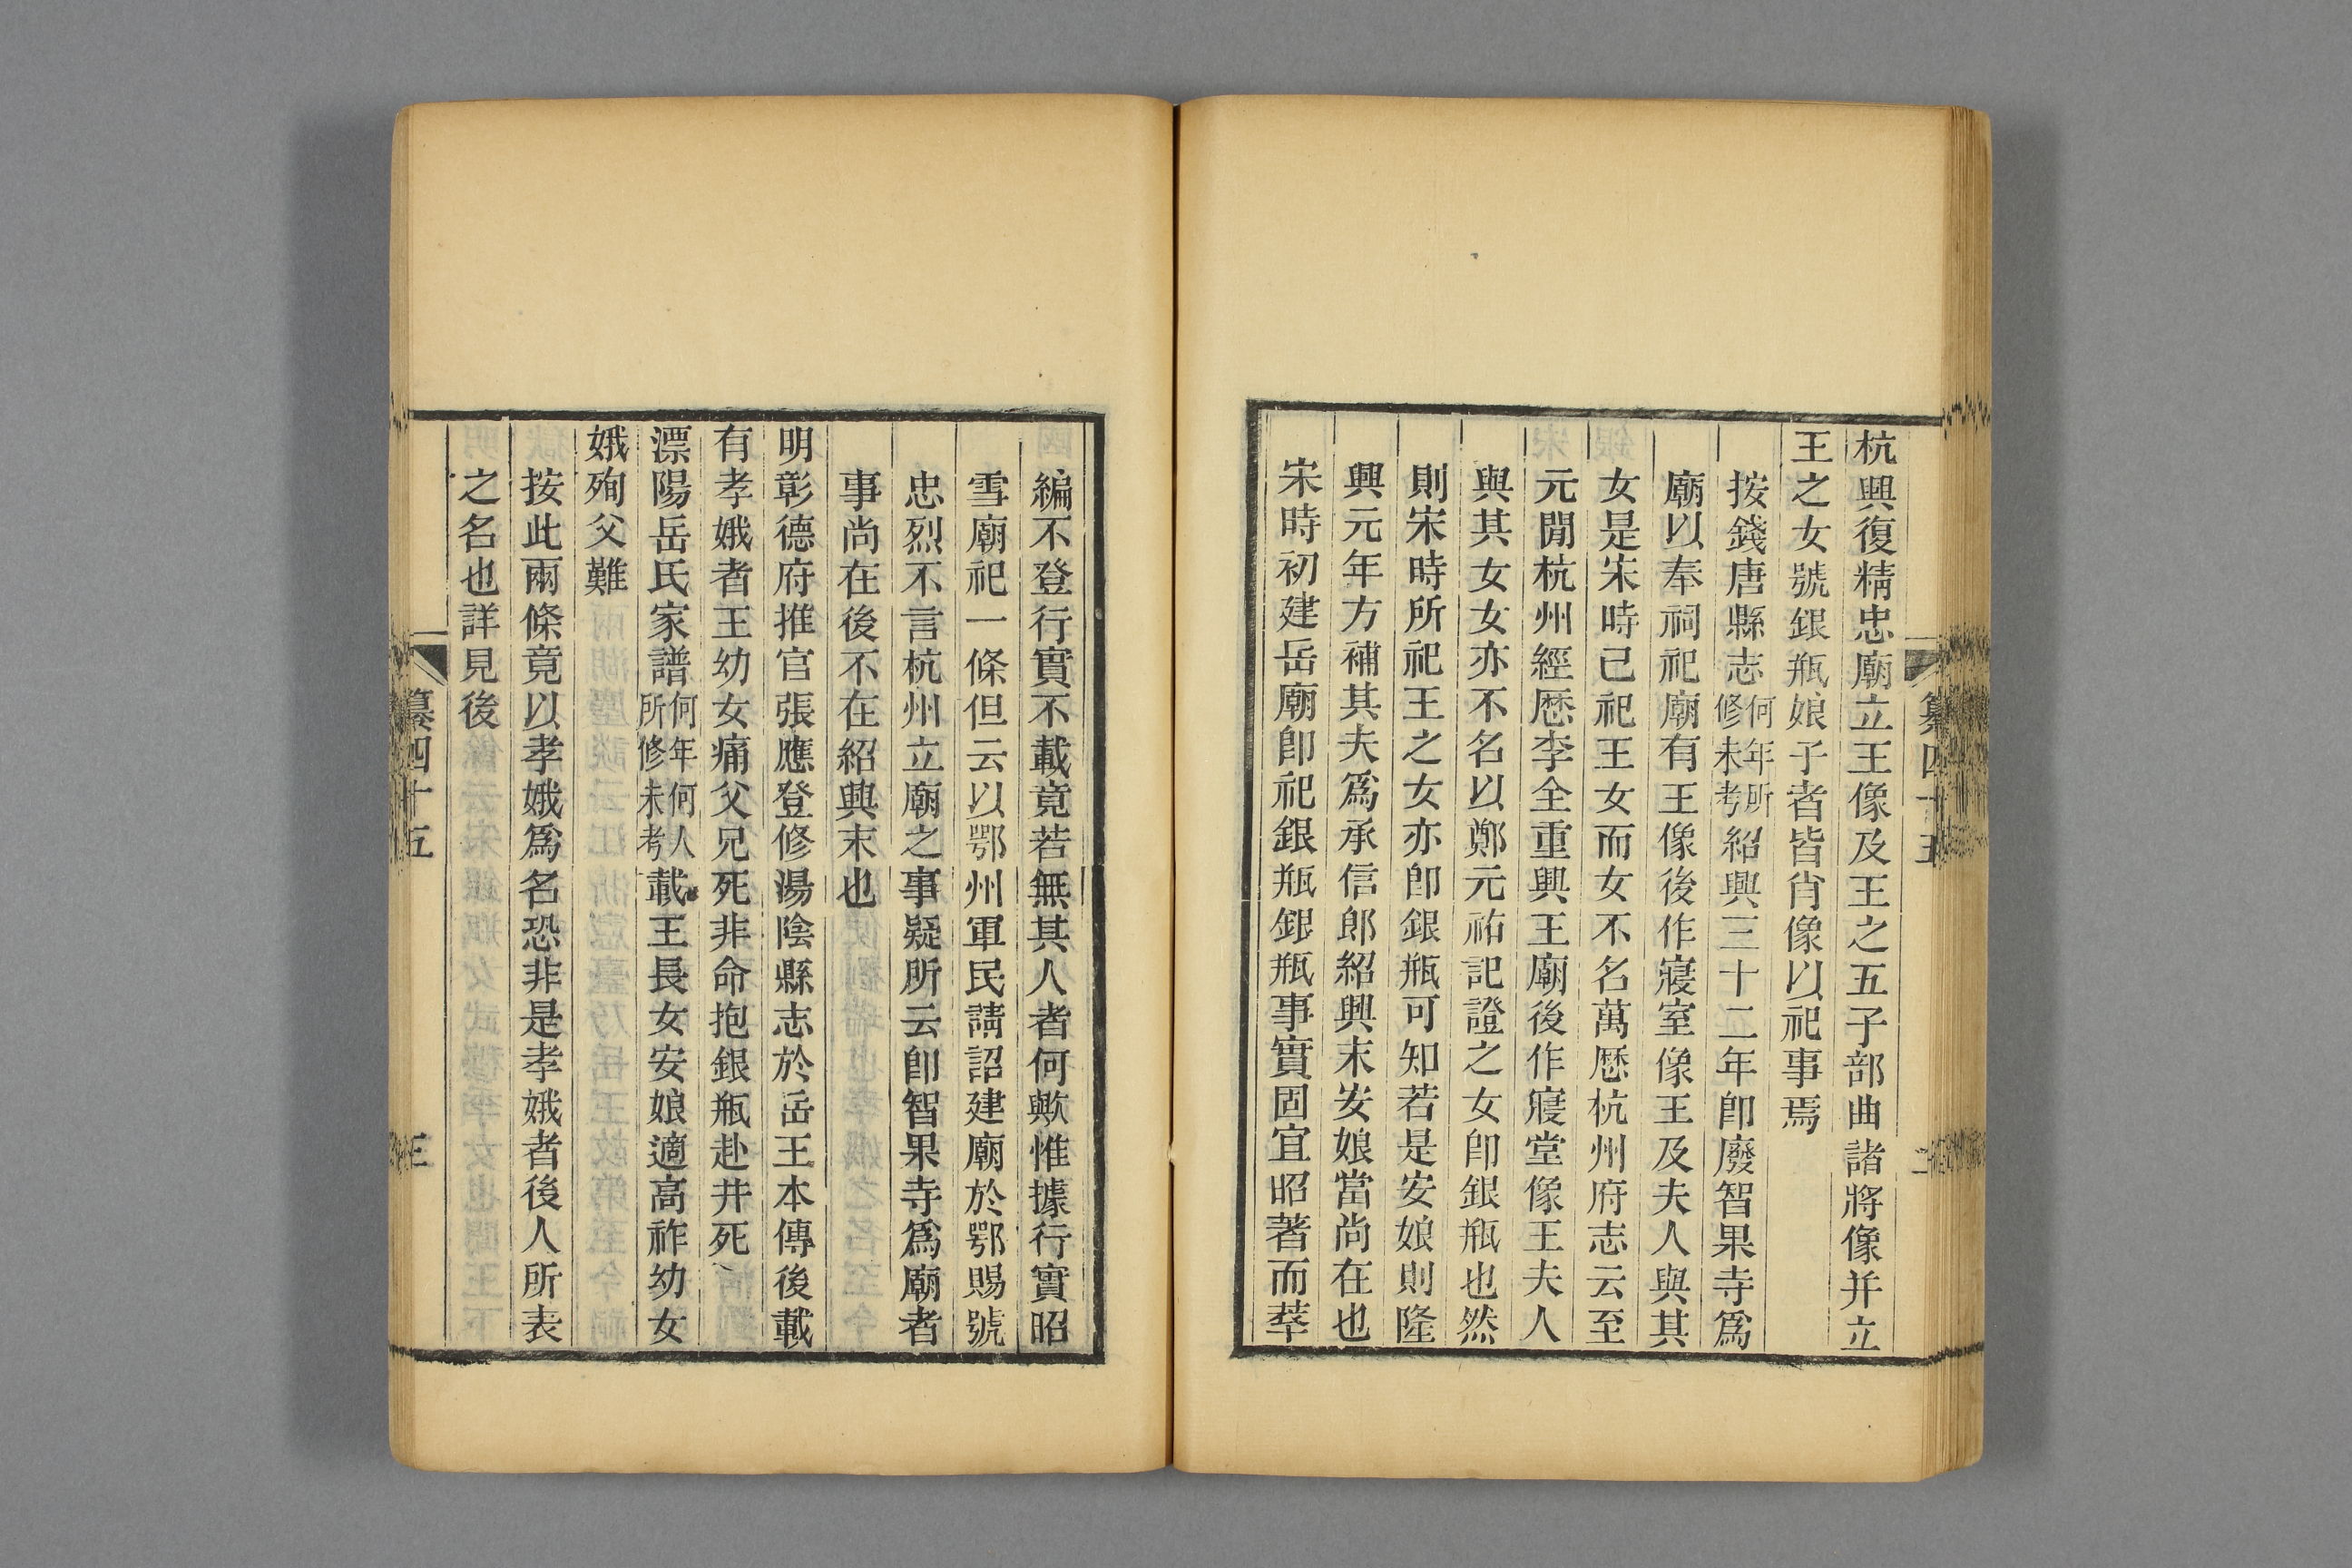 杭興復精忠廟立王像及王之五子部曲諸將像并立
王之女號銀瓶娘子者皆肖像以祀事焉
按錢唐縣志何年所修未考紹興三十二年卽廢智果寺爲
廟以奉祠祀廟有王像後作寢室像王及夫人與其
女是宋時已祀王女而女不名萬厯杭州府志云至
元閒杭州經厯李全重興王廟後作寢堂像王夫人
與其女女亦不名以鄭元祐記證之女卽銀瓶也然
則宋時所祀王之女亦卽銀瓶可知若是安娘則隆
興元年方補其夫爲承信郎紹興末安娘當尚在也
宋時初建岳廟卽祀銀瓶銀瓶事實固宜昭著而稡
編不登行實不載竟若無其人者何歟惟據行實昭
雪廟祀一條但云以鄂州軍民請詔建廟於鄂賜號
忠烈不言杭州立廟之事疑所云卽智果寺爲廟者
事尚在後不在紹興末也
明彰德府推官張應登修湯陰縣志於岳王本傳後載
有孝娥者王幼女痛父兄死非命抱銀瓶赴井死
漂陽岳氏家譜何年何人所修未考載王長女安娘適高祚幼女
娥殉父難
按此兩條竟以孝娥爲名恐非是孝娥者後人所表
之名也詳見後
纂四十五
三